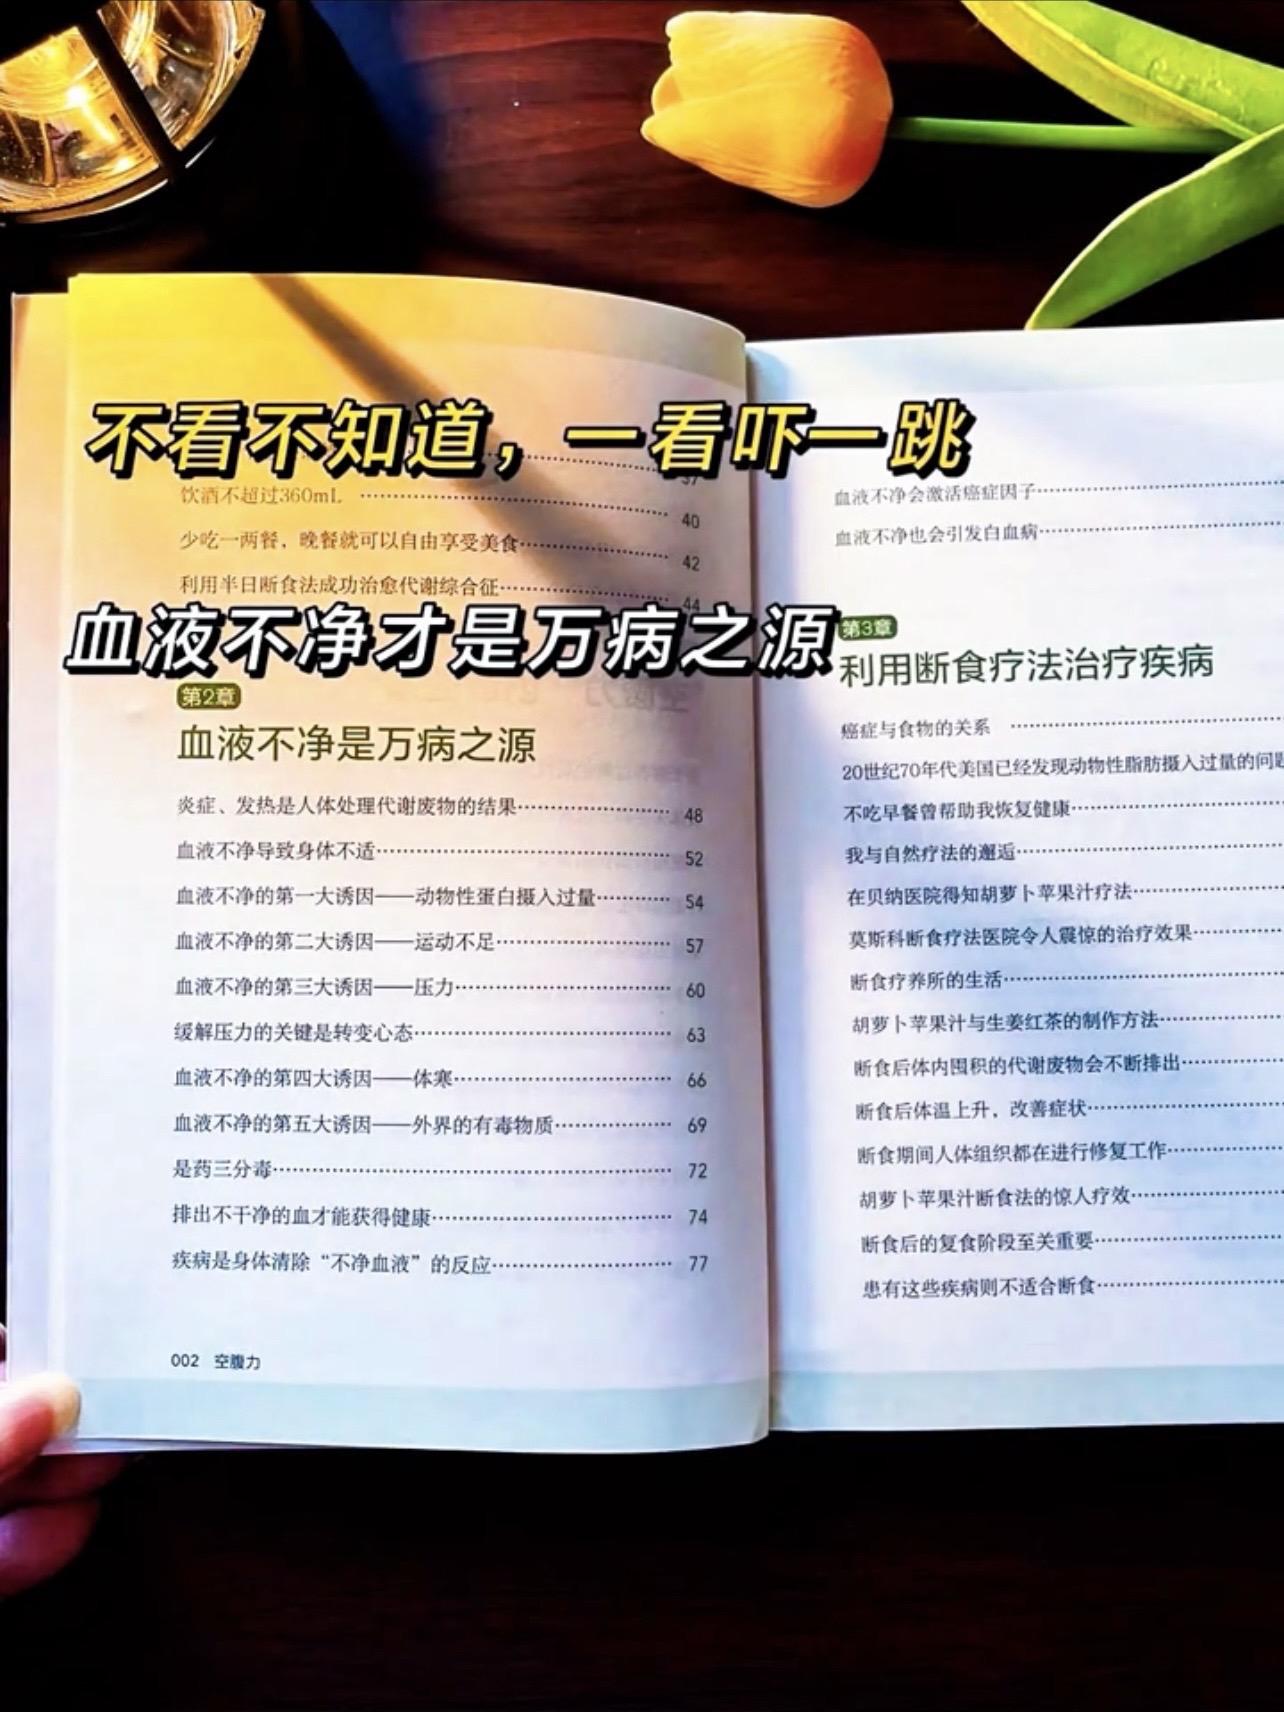 不看不知道，一看吓一跳
37
饮酒不超过360mL 40
少吃一两餐，晚餐就可以自由享受美食 42
利用半日断食法成功治愈代谢综合征 44
血液不净才是万病之源
第2章
血液不净是万病之源
炎症、发热是人体处理代谢废物的结果 48
血液不净导致身体不适 52
血液不净的第一大诱因——动物性蛋白摄入过量 54
血液不净的第二大诱因——运动不足 57
血液不净的第三大诱因——压力 60
缓解压力的关键是转变心态 63
血液不净的第四大诱因——体寒 66
血液不净的第五大诱因——外界的有毒物质 69
是药三分毒 72
排出不干净的血才能获得健康 74
疾病是身体清除“不净血液”的反应 77
002 空腹力
血液不净会激活癌症因子
血液不净也会引发白血病
第3章
利用断食疗法治疗疾病
癌症与食物的关系
20世纪70年代美国已经发现动物性脂肪摄入过量的问题
不吃早餐曾帮助我恢复健康
我与自然疗法的邂逅
在贝纳医院得知胡萝卜苹果汁疗法
莫斯科断食疗法医院令人震惊的治疗效果
断食疗养所的生活
胡萝卜苹果汁与生姜红茶的制作方法
断食后体内囤积的代谢废物会不断排出
断食后体温上升，改善症状
断食期间人体组织都在进行修复工作
胡萝卜苹果汁断食法的惊人疗效
断食后的复食阶段至关重要
患有这些疾病则不适合断食